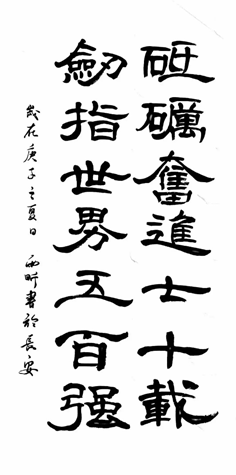 砥礪奮進士十載
劍指世界五百强
歲在庚子之夏日 西町書於長安